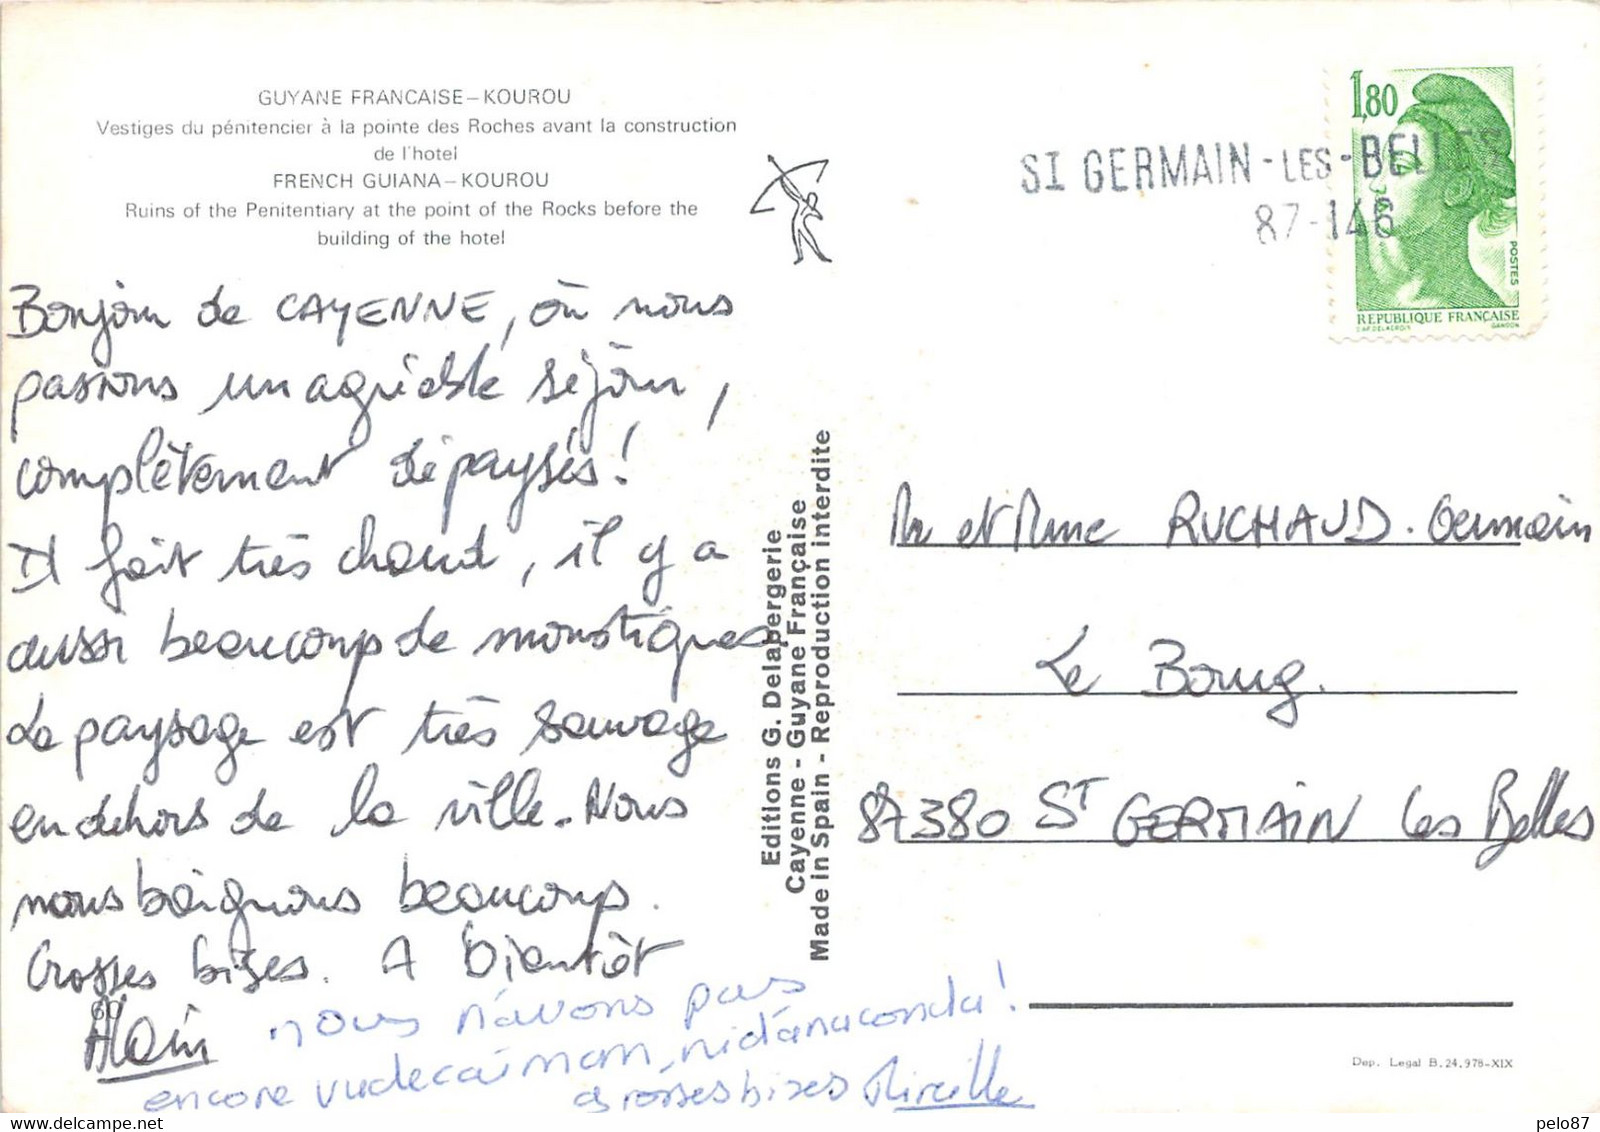 GUYANE FRANCAISE – KOUROU
Vestiges du pénitencier à la pointe des Roches avant la construction
de l'hotel
FRENCH GUIANA – KOUROU
Ruins of the Penitentiary at the point of the Rocks before the
building of the hotel
Bonjour de CAYENNE, où nous
passons un agréable séjour,
complètement dépaysés!
Il fait très chaud, il y a
aussi beaucoup de moustiques
Le paysage est très sauvage
en dehors de la ville. Nous
nous baignons beaucoup.
Grosses bises. A bientôt
60
Alain
nous n'avons pas
encore vu de caïman, ni d'anaconda!
grosses bises Mireille
Editions G. Delabergerie
Cayenne - Guyane Française
Made in Spain - Reproduction interdite
1,80
POSTES
REPUBLIQUE FRANÇAISE
CAP. DELACROIX
GANDON
ST GERMAIN-LES-BELLES
87-146
Mr et Mme RUCHAUD. Germain
Le Bourg.
87380 ST GERMAIN les Belles
Dep. Legal B. 24.978-XIX
pelo87